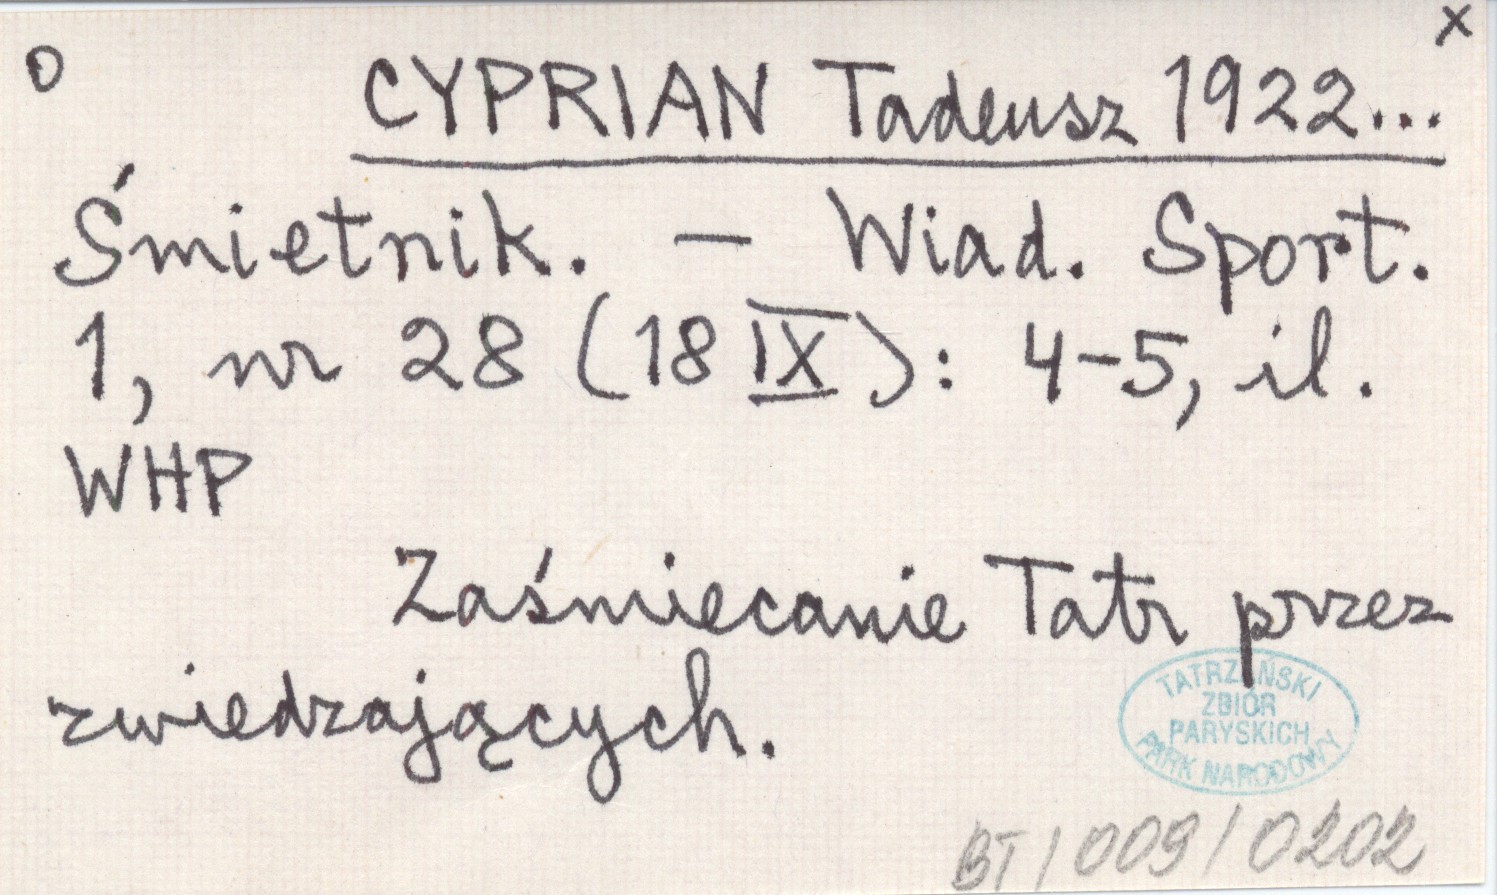 O
x
CYPRIAN Tadeusz 1922...
Śmietnik. — Wiad. Sport.
1, nr 28 (18 IX): 4-5, il.
WHP
Zaśmiecanie Tatr przez
zwiedzających.
TATRZAŃSKI
ZBIÓR
PARYSKICH
PARK NARODOWY
BT/009/0202